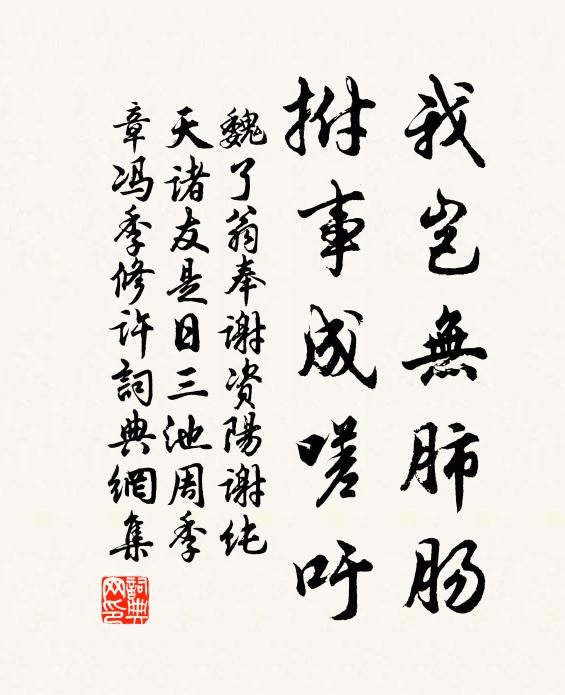 我岂無肺肠
拊事成嗟吁
魏了翁奉谢资陽谢纯
天诸友是日三池周季
章冯季修许詞典網集
詞典網印